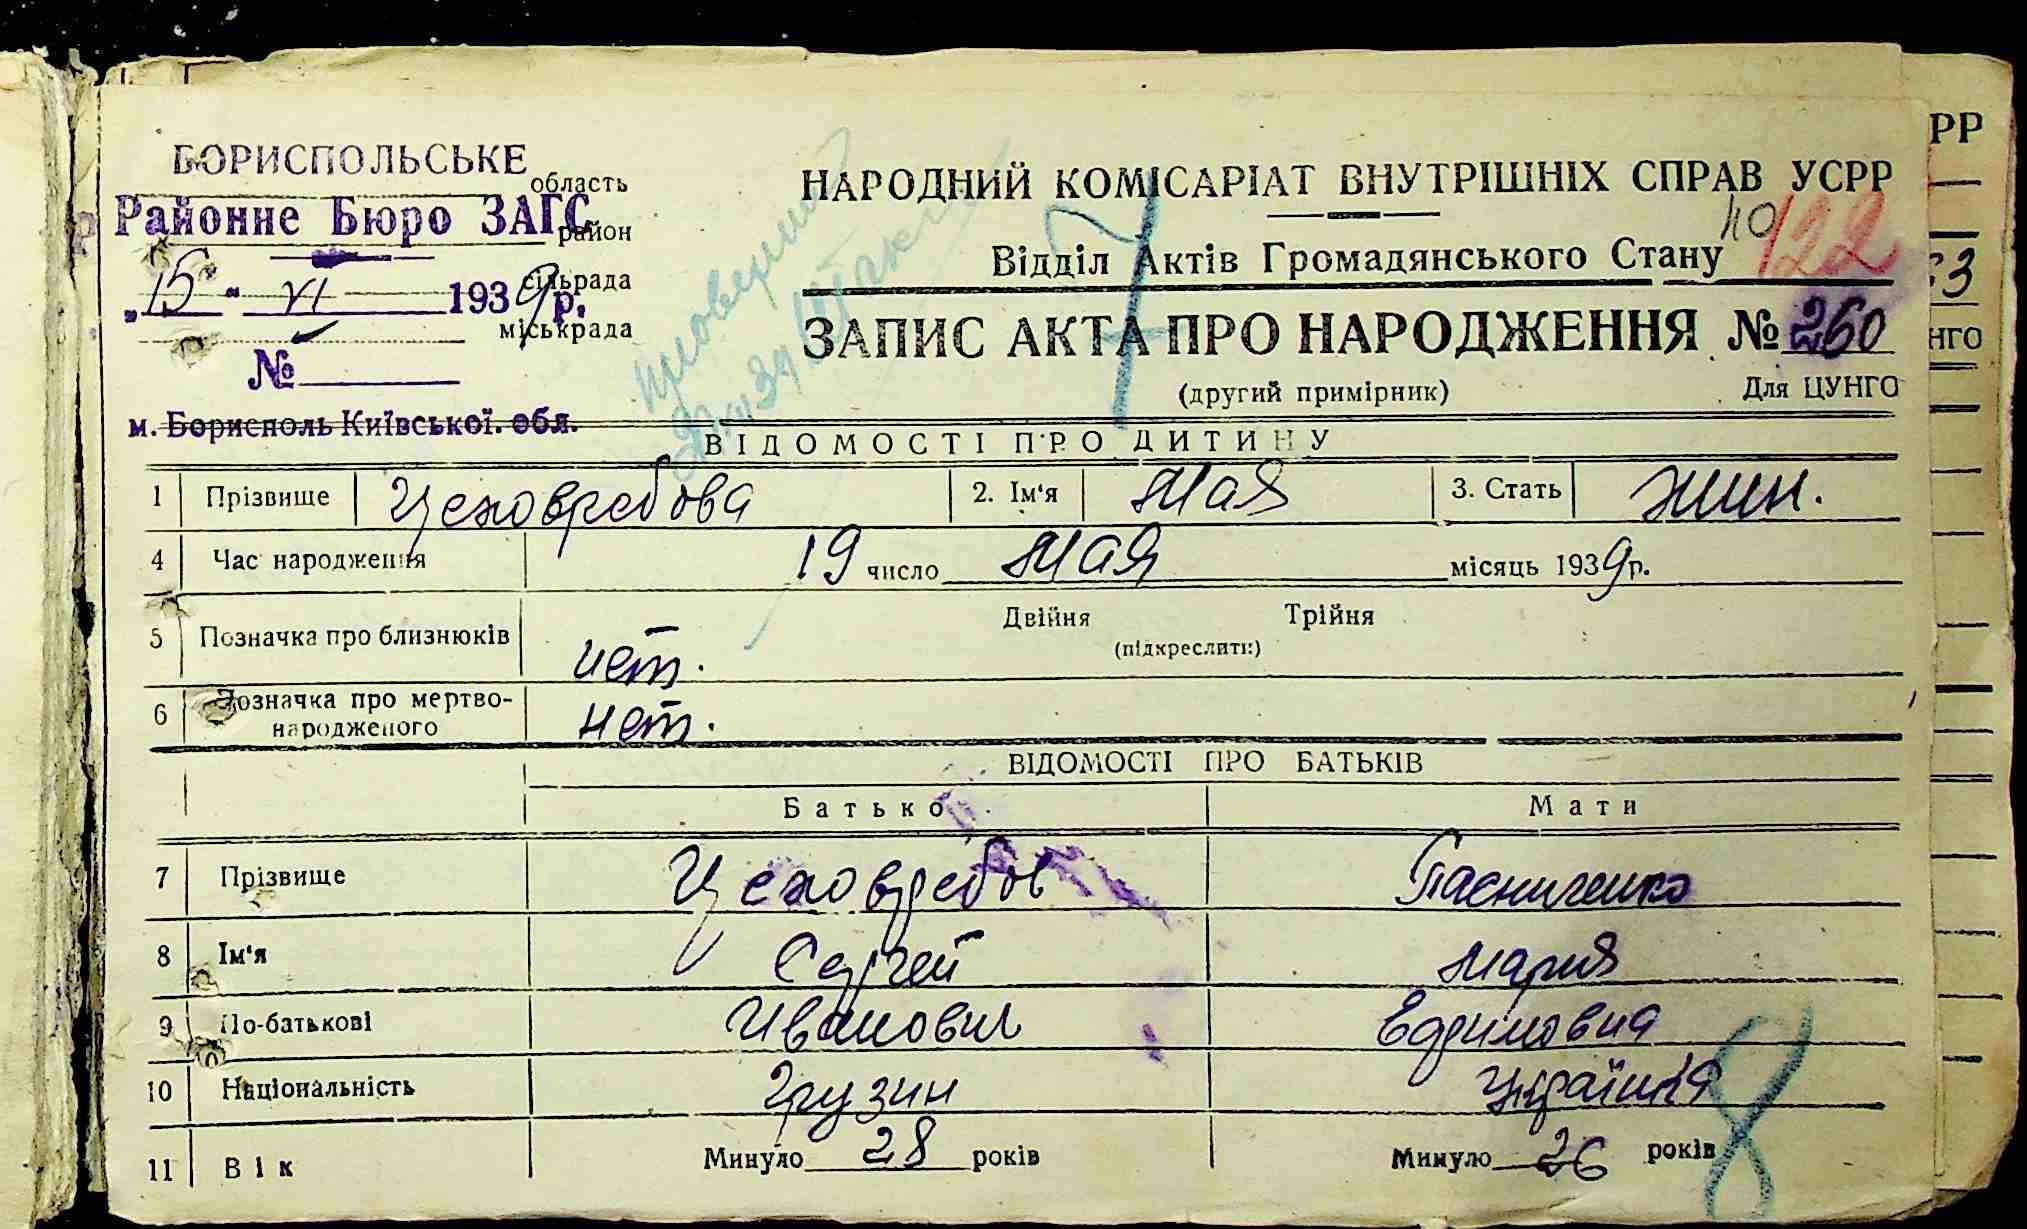 БОРИСПОЛЬСЬКЕ
область
Районне Бюро ЗАГС
район
„15“ VI 1939 р.
сільрада
міськрада
№
м. Борисполь Київської обл.
НАРОДНИЙ КОМІСАРІАТ ВНУТРІШНІХ СПРАВ УСРР
40
122
Відділ Актів Громадянського Стану
ЗАПИС АКТА ПРО НАРОДЖЕННЯ № 260
(другий примірник)
Для ЦУНГО
7
ВІДОМОСТІ ПРО ДИТИНУ
1 Прізвище Цеховребова 2. Ім'я Мая 3. Стать жин.
4 Час народження 19 число мая місяць 1939 р.
5 Позначка про близнюків нет. Двійня Трійня
(підкреслити)
6 Позначка про мертво-
народженого нет.
ВІДОМОСТІ ПРО БАТЬКІВ
Батько Мати
7 Прізвище Цеховребов Пасниченко
8 Ім'я Сергей Мария
9 По-батькові Иванович Ефимовна
10 Національність Грузин Українка
11 Вік Минуло 28 років Минуло 26 років
8
РР
63
НГО